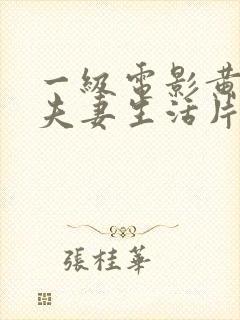 一級電影黃
夫妻生活片
張桂華